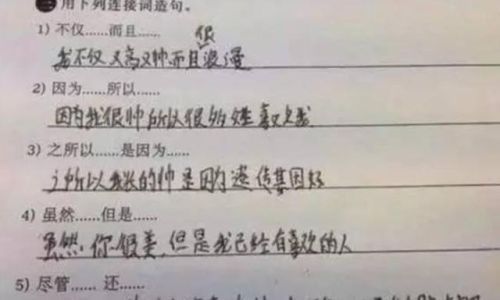 二 用下列连接词造句。
1) 不仅……而且……
我不仅又高又帅而且很浪漫
2) 因为……所以……
因为我很帅所以很多姓喜欢我
3) 之所以……是因为……
之所以我长的帅是因为遗传基因好
4) 虽然……但是……
虽然你很美,但是我已经有喜欢的人
5) 尽管…… 还……